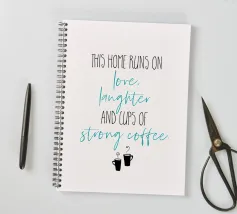 THIS HOME RUNS ON
love,
laughter
AND CUPS OF
strong coffee.